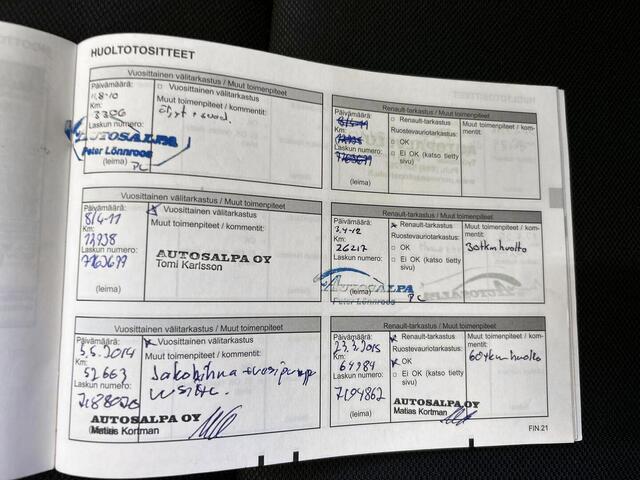 HUOLTOTOSITTEET
Vuosittainen välitarkastus / Muut toimenpiteet
Päivämäärä:
Vuosittainen välitarkastus
Km:
3306
Muut toimenpiteet / kommentit:
Laskun numero:
AUTOSALPA
Peter Lönnroos
(leima)
PL
Renault-tarkastus / Muut toimenpiteet
Päivämäärä:
8/4-11
Renault-tarkastus
Ruostevauriotarkastus:
Muut toimenpiteet / kommentit:
Km:
OK
Laskun numero:
Ei OK (katso tietty sivu)
(leima)
Vuosittainen välitarkastus / Muut toimenpiteet
Päivämäärä:
8/4-11
Vuosittainen välitarkastus
Km:
Muut toimenpiteet / kommentit:
Laskun numero:
AUTOSALPA OY
Tomi Karlsson
(leima)
Renault-tarkastus / Muut toimenpiteet
Päivämäärä:
3.4-12
Renault-tarkastus
Ruostevauriotarkastus:
Muut toimenpiteet / kommentit:
Km:
26217
OK
30tkm huolto
Laskun numero:
Ei OK (katso tietty sivu)
(leima)
AUTOSALPA
Peter Lönnroos
PL
Vuosittainen välitarkastus / Muut toimenpiteet
Päivämäärä:
5.5.2014
Vuosittainen välitarkastus
Km:
Muut toimenpiteet / kommentit:
52663
Jakohihna + vesipumppu
Laskun numero:
AUTOSALPA OY
Matias Kortman
Renault-tarkastus / Muut toimenpiteet
Päivämäärä:
23.3.2015
Renault-tarkastus
Ruostevauriotarkastus:
Muut toimenpiteet / kommentit:
Km:
OK
60tkm huolto
Laskun numero:
Ei OK (katso tietty sivu)
7104862
AUTOSALPA OY
Matias Kortman
(leima)
FIN.21